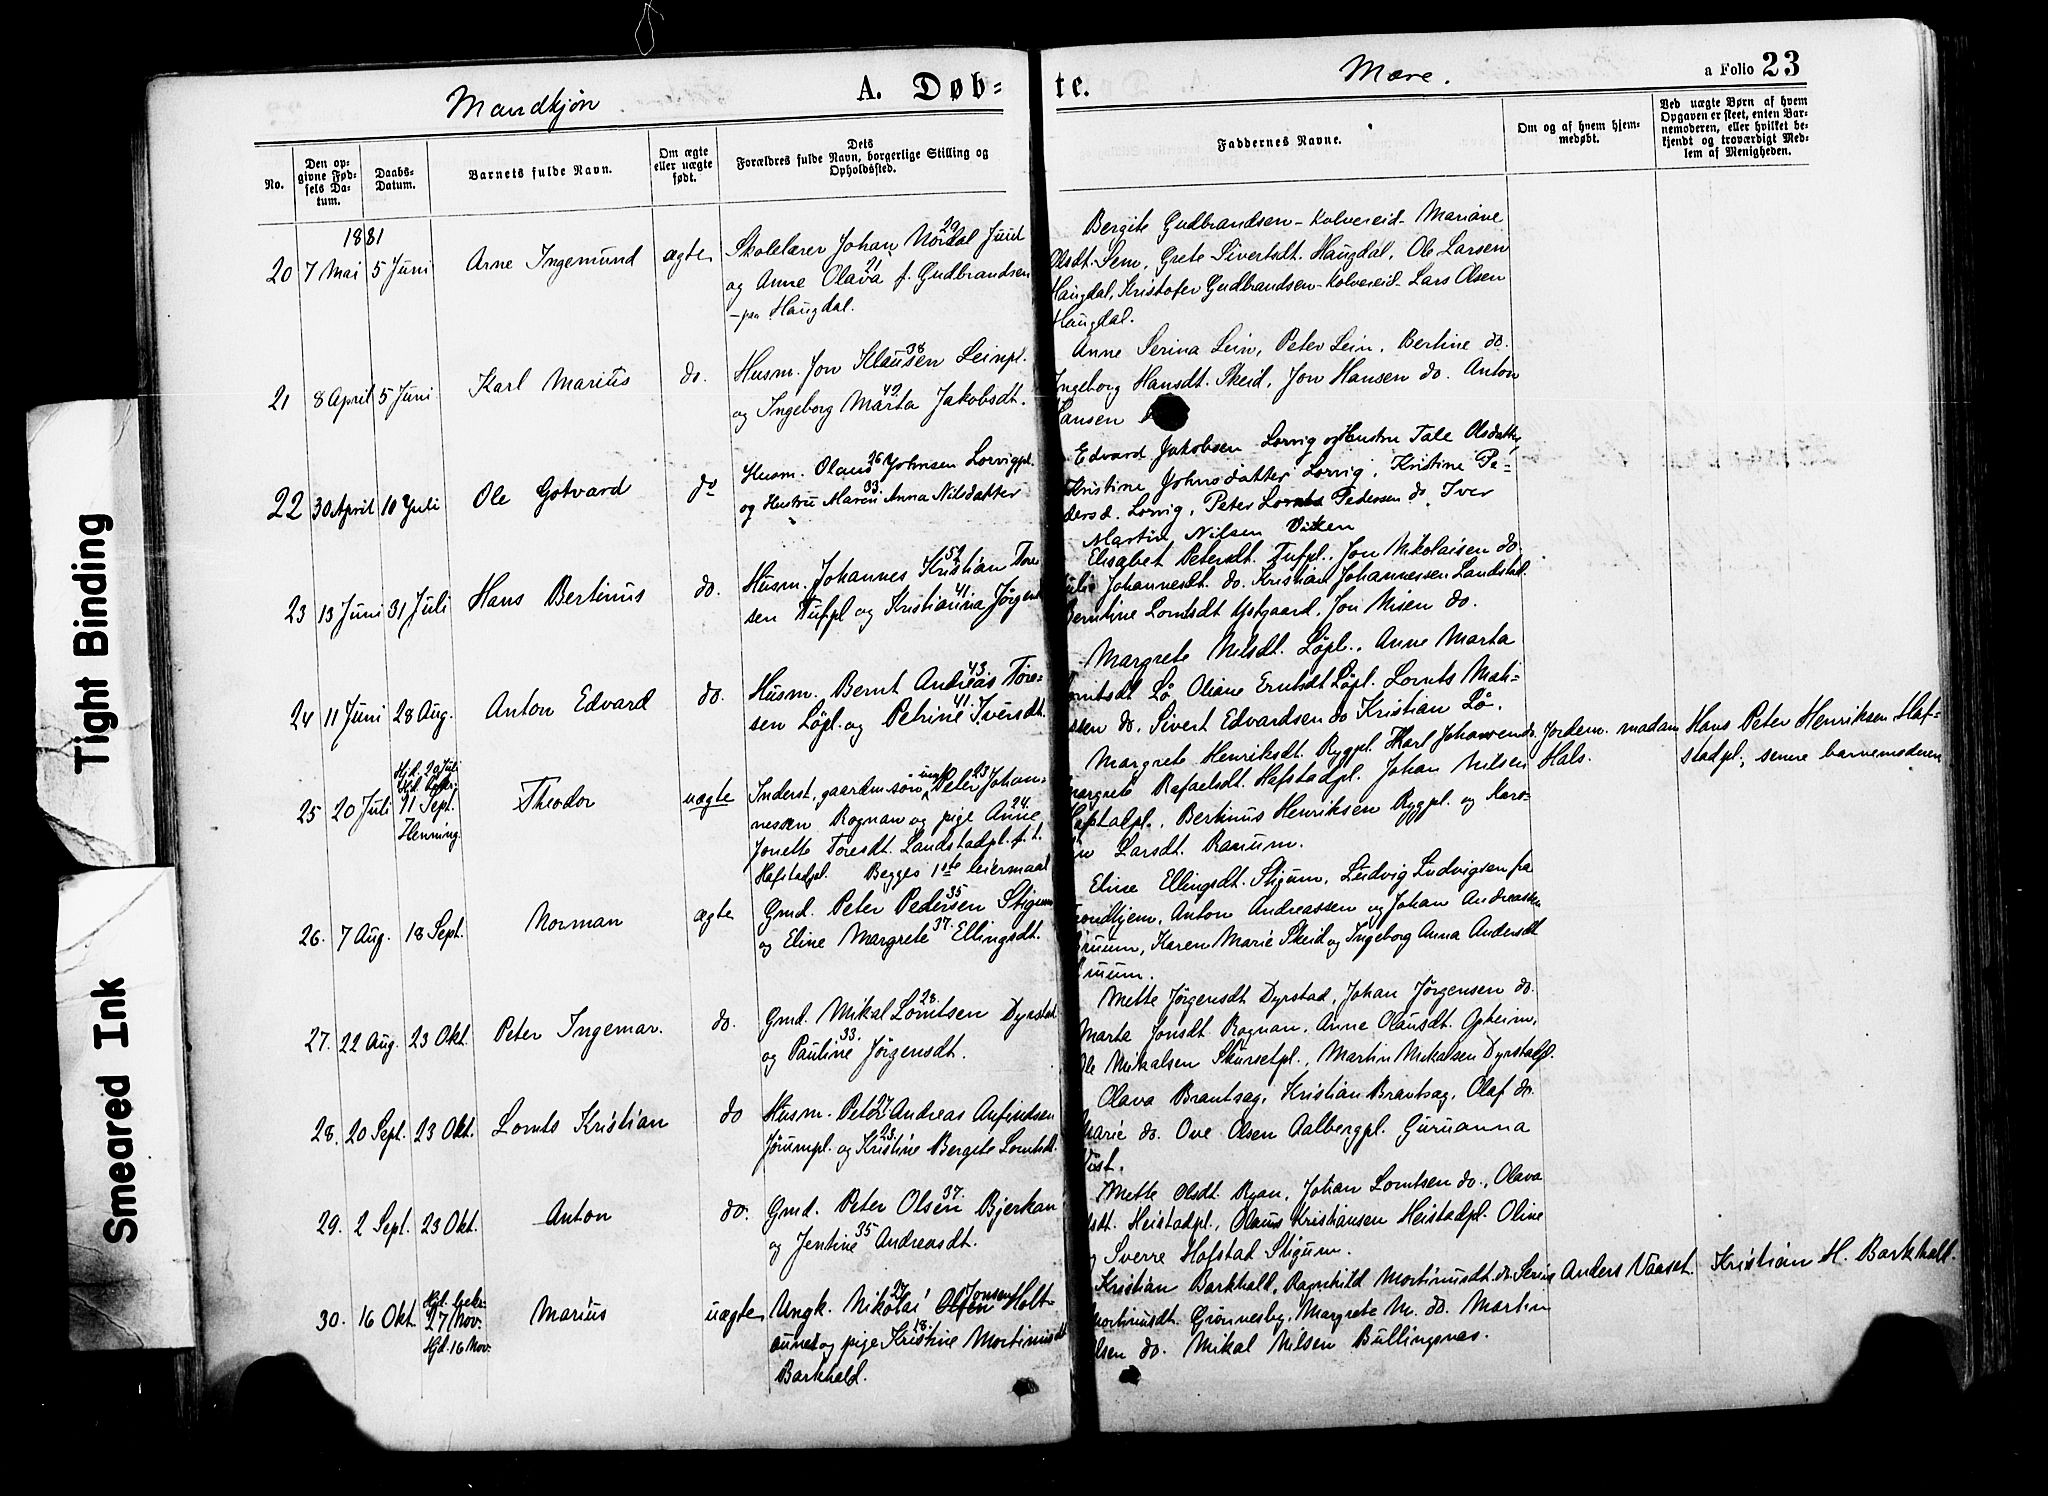 Mandkjøn
A. Døb-
te.
Mære.
a Folio 23
No.
Den opgivne Fødsels Datum.
Daabs-Datum.
Barnets fulde Navn.
Om ægte eller uægte født.
Dets Forældres fulde Navn, borgerlige Stilling og Opholdssted.
Faddernes Navne.
Om og af hvem hjemmedøbt.
Ved uægte Børn af hvem Opgaven er skeet, enten Barnemoderen, eller hvilket bekjendt og troværdigt Medlem af Menigheden.
1881
20 7 Mai 5 Juni Arne Ingemund ægte
Skolelærer Johan Nordal Juul 29
og Anne Olava f. Gudbrandsen 21
- paa Haugdal.
Bergite Gudbrandsen - Kolvereid - Mariane
Olsdt. Sem, Grete Sivertsdt. Haugdal, Ole Larsen
Haugdal, Kristofer Gudbrandsen - Kolvereid - Lars Olsen
Haugdal.
21 8 April 5 Juni Karl Marius do.
Husm. Jon Klausen Leinpl. 38
og Ingeborg Marta Jakobsdt. 42
Anne Serina Lein, Peter Lein, Bertine do.
Ingeborg Hansdt. Skeid, Jon Hansen do. Anton
Hansen
22 30 April 10 Juli Ole Gotvard do
Husm. Olaus Johnsen Lorvigpl. 26
og Hustru Maren Anna Nilsdatter 33
Edvard Jakobsen Lorvig og Hustru Tale Olsdatter,
Kristine Johnsdatter Lorvig, Kristine Pe-
dersd. Lorvig, Peter Pedersen do, Iver
Martin Nilsen Viken
23 13 Juni 31 Juli Hans Bertinus do.
Husm. Johannes Kristian Tore- 52
sen Tufpl og Kristianna Jørgen 41
Elisabet Petersdt. Tufpl., Jon Nikolaisen do.
Julie Johannesdt. do. Kristian Johannessen Landstad.
Berntine Lorntsdt Ystgaard, Jon Nisen do.
24 11 Juni 28 Aug. Anton Edvard do.
Husm. Bernt Andreas Tore- 43
sen Løpl. og Petrine Iversdt. 41
Margrete Nilsdt. Løpl., Anne Marta
Lorntsdt Lø, Oliane Erntsdt Løpl. Lornts Mati-
sen do. Sivert Edvardsen do Kristian Lø.
25 20 Juli Hjd. 20 Juli 11 Sept. Henning. Theodor uægte
Inderst, gaardm. søn ungk. Peter Johan- 23
nessen Rognan og pige Anne 24
Jonette Toresdt. Landstadpl. f. t.
Hafstadpl. Begges 1ste leiermaal
Margrete Henriksdt. Rygpl. Karl Johansen do.
Margrete Rafaelsdt. Hafstadpl. Johan Nilsen
Hafstadpl., Bertinus Henriksen Rygpl. og Karo-
line Larsdt. Ranum.
Jordem. madam
Hals.
Hans Peter Henriksen Haf-
stadpl., senere barnemoderen
26. 7 Aug. 18 Sept. Norman ægte
Gmd. Peter Pedersen Stigum 35
og Eline Margrete Ellingsdt. 37
Eline Ellingsdt. Stigum, Ludvig Ludvigsen fra
Trondhjem, Anton Andreassen og Johan Andreassen
Gruum, Karen Marie Skeid og Ingeborg Anna Andersdt
Gruum.
27. 22 Aug. 23 Okt. Peter Ingemar. do.
Gmd. Mikal Lorntsen Dyrstad 28
og Pauline Jørgensdt. 33
Mette Jørgensdt Dyrstad, Johan Jørgensen do.
Marta Jonsdt Rognan, Anne Olausdt. Opheim,
Ole Mikalsen Skursetpl., Martin Mikalsen Dyrstadpl.
28. 20 Sept. 23 Okt. Lornts Kristian do
Husm. Peter Andreas Anfindsen 27
Jørumpl. og Kristine Bergete Lorntsdt. 23
Olava Brantsæg, Kristian Brantsæg, Olaf do.
Marie do. Ove Olsen Aalbergpl. Guruanna
Vist.
29. 2 Sept. 23 Okt. Anton do.
Gmd. Peter Olsen Bjerkan 37
og Jentine Andreasdt. 35
Mette Olsdt. Ryan, Johan Lorntsen do., Olava
Olsdt. Heistadpl., Olaus Kristiansen Heistadpl. Oline
og Sverre Hofstad Stigum.
30. 16 Okt. 27 Nov. Hjd. 16 Nov. Marius uægte
Ungk. Nikolai Jonsen Holt- 27
aunet og pige Kristine Mortinusdt 18
Barkhald.
Kristian Barkhald, Ragnhild Mortinusdt. do.
Mortinusdt. Grønnesby, Margrete M. do. Martin
Olsen do. Mikal Nilsen Bullingsnas.
Anders Vaaset
Kristian H. Barkhald.
Tight Binding
Smeared Ink